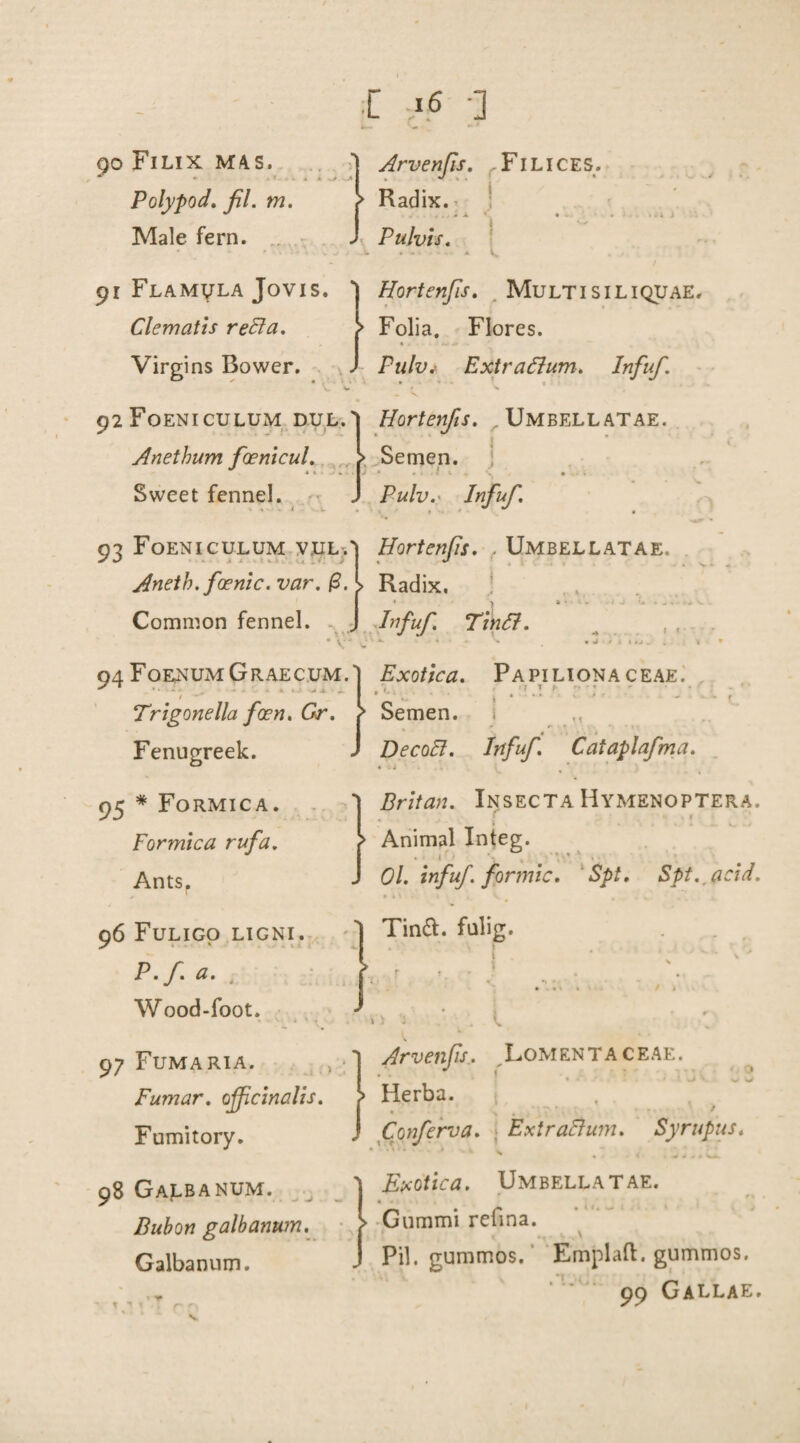 [ 16 ]
90 FILIX MAS. Arvenſis. FILICES.
Polypod. fil. m. Radix.
Male fern. Pulvis.
91 FLAMVLA JOVIS. Hortenſis. MULTISILIQUAE.
Clematis recta. Folia. Flores.
Virgins Bower. Pulv. Extractum. Infuſ.
92 FOENICULUM DUL. Hortenſis. UMBELLATAE.
Anethum fœnicul. Semen.
Sweet fennel. Pulv. Infuſ.
93 FOENICULUM VUL. Hortenſis. UMBELLATAE.
Aneth. fœnic. var. β. Radix.
Common fennel. Infuſ. Tinct.
94 FOENUM GRAECUM. Exotica. PAPILIONACEAE.
Trigonella fœn. Gr. Semen.
Fenugreek. Decoct. Infuſ. Cataplaſma.
95 * FORMICA. Britan. INSECTA HYMENOPTERA.
Formica rufa. Animal Integ.
Ants. Ol. infuſ. formic. Spt. Spt. acid.
96 FULIGO LIGNI. Tinct. fulig.
P. ſ. a.
Wood-ſoot.
97 FUMARIA. Arvenſis. LOMENTACEAE.
Fumar. officinalis. Herba.
Fumitory. Conſerva. Extractum. Syrupus.
98 GALBANUM. Exotica. UMBELLATAE.
Bubon galbanum. Gummi reſina.
Galbanum. Pil. gummos. Emplaſt. gummos.
99 GALLAE.